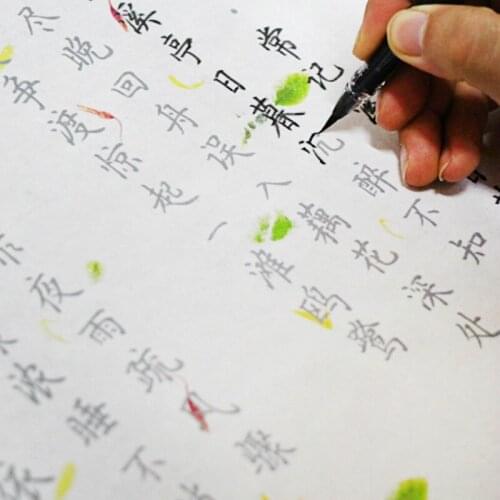 常记
溪亭日暮沉醉不知
尽晚回舟误入藕花深处
争渡惊起一滩鸥鹭
夜雨疏风骤
浓睡不